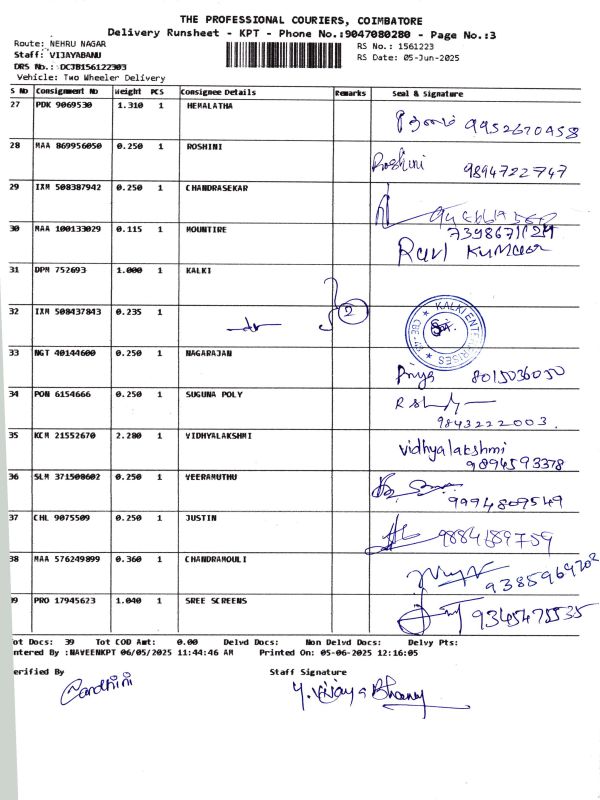 THE PROFESSIONAL COURIERS, COIMBATORE
Delivery Runsheet - KPT - Phone No.:9047080280 - Page No.:3
Route: NEHRU NAGAR
RS No.: 1561223
Staff: VIJAYABANU
RS Date: 05-Jun-2025
DRS No.: DCJB156122303
Vehicle: Two Wheeler Delivery
S No Consignment No Weight PCS Consignee Details Remarks Seal & Signature
27 PDK 9069530 1.310 1 HEMALATHA
9952670458
28 MAA 869956050 0.250 1 ROSHINI
Roshini 9894722747
29 IXM 508387942 0.250 1 CHANDRASEKAR
30 MAA 100133029 0.115 1 MOUNTIRE
Kumaar
31 DPM 752693 1.000 1 KALKI
32 IXM 508437843 0.235 1
2
KALKI ENTERPRISES
33 NGT 40144600 0.250 1 NAGARAJAN
Priya 8015036050
34 PON 6154666 0.250 1 SUGUNA POLY
9843222003.
35 KCM 21552670 2.280 1 VIDHYALAKSHMI
vidhyalakshmi
9894593378
36 SLM 371508602 0.250 1 VEERAMUTHU
9994809549
37 CHL 9075509 0.250 1 JUSTIN
9884189759
38 MAA 576249899 0.360 1 CHANDRAMOULI
9385969202
39 PRO 17945623 1.040 1 SREE SCREENS
9345475535
ot Docs: 39 Tot COD Amt: 0.00 Delvd Docs: Non Delvd Docs: Delvy Pts:
ntered By :NAVEENKPT 06/05/2025 11:44:46 AM Printed On: 05-06-2025 12:16:05
erified By Staff Signature
Y. Vijaya Bhanu